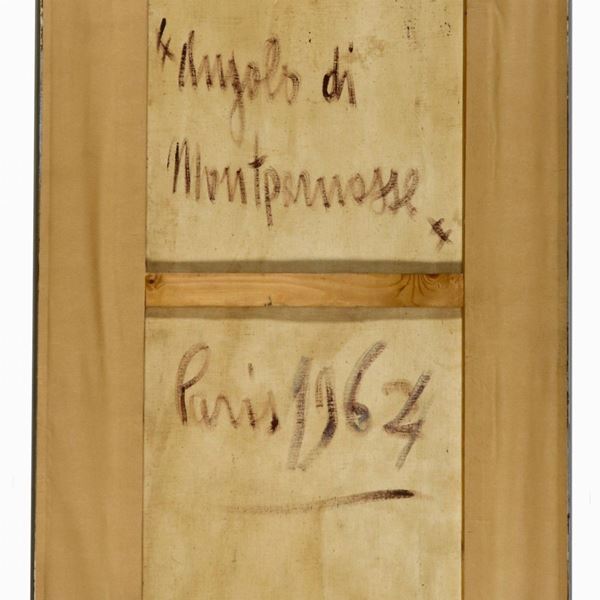 "Angolo di
Montparnasse"
Paris 1962